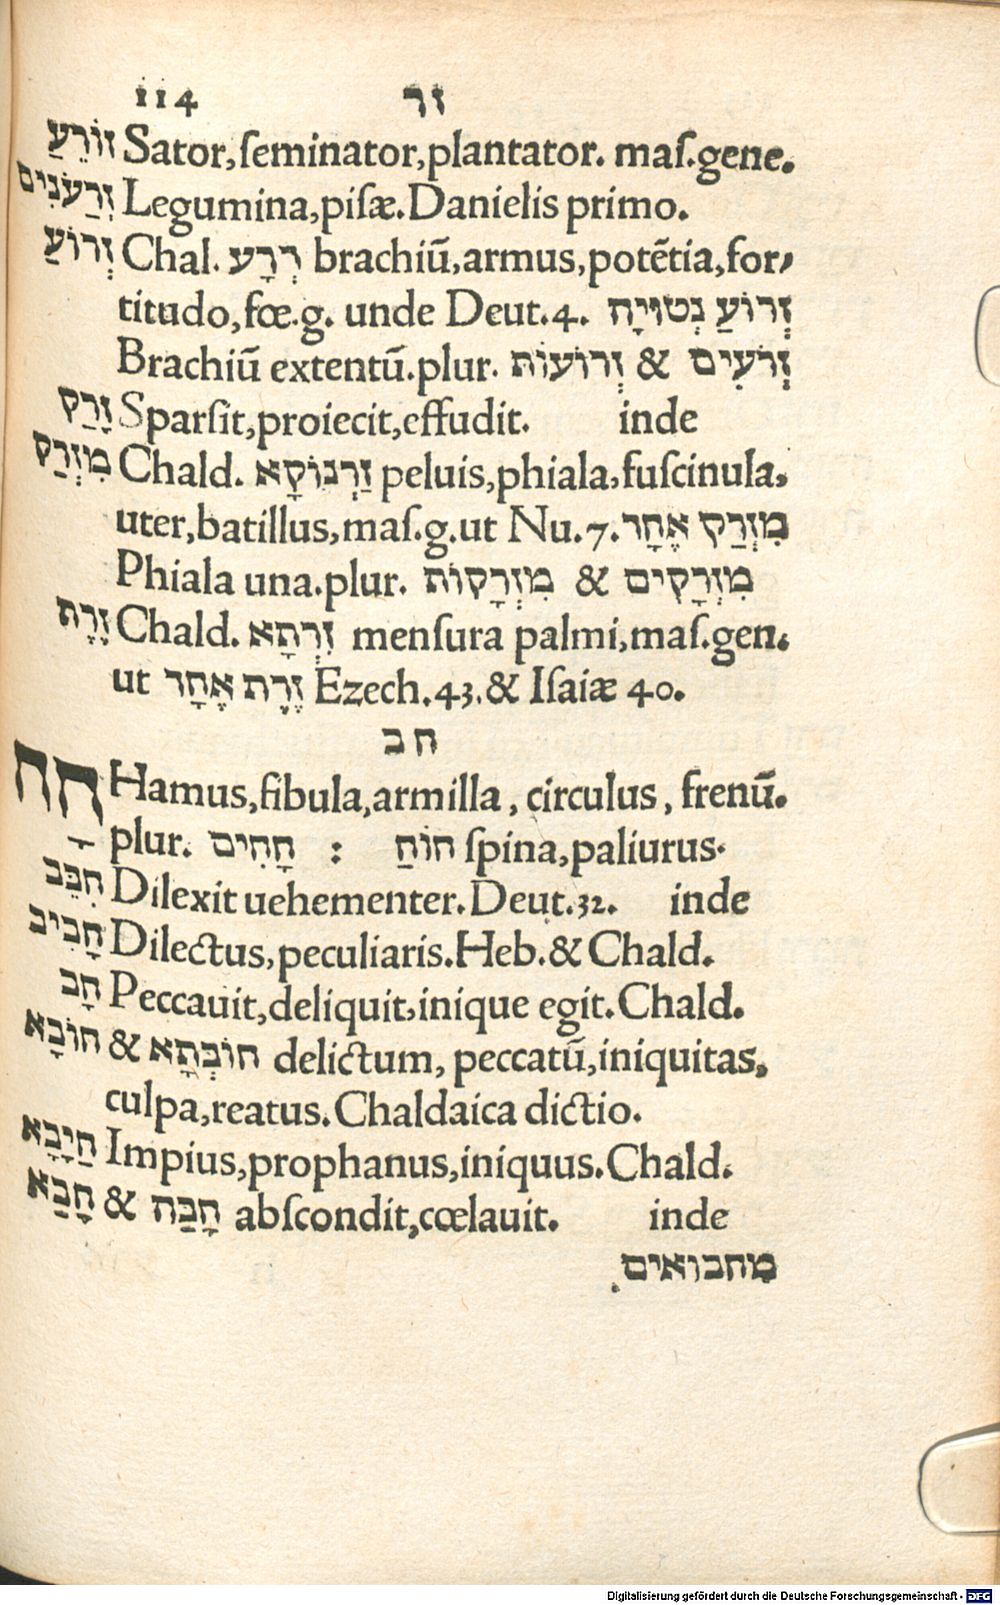 114 זר
זוֹרֵעַ Sator,ſeminator,plantator. maſ.gene.
זְרַעֹנִים Legumina,piſæ.Danielis primo.
זְרוֹעַ Chal. דְּרָע brachiū,armus,potētia,for⸗
titudo,fœ.g. unde Deut.4. זְרוֹעַ נְטוּיָה
Brachiū extentū.plur. זְרוֹעוֹת & זְרֹעִים
זָרַק Sparſit,proiecit,effudit. inde
מִזְרַק Chald. זַרְנוֹקָא peluis,phiala,fuſcinula,
uter,batillus,maſ.g.ut Nu.7. מִזְרַק אֶחָד
Phiala una.plur. מִזְרָקוֹת & מִזְרָקִים
זֶרֶת Chald. זִרְתָא menſura palmi,maſ.gen.
ut זֶרֶת אֶחָד Ezech.43.& Iſaiæ 40.
חב
חָח Hamus,fibula,armilla, circulus, frenū.
plur. חָחִים : חוֹחַ ſpina,paliurus.
חִבֵּב Dilexit uehementer.Deut.32. inde
חָבִיב Dilectus,peculiaris.Heb.& Chald.
חָב Peccauit,deliquit,inique egit.Chald.
חוֹבָא & חוֹבְתָא delictum, peccatū,iniquitas,
culpa,reatus.Chaldaica dictio.
חַיָבָא Impius,prophanus,iniquus.Chald.
חָבַא & חָבַה abſcondit,cœlauit. inde
מחבואים
Digitalisierung gefördert durch die Deutsche Forschungsgemeinschaft - DFG